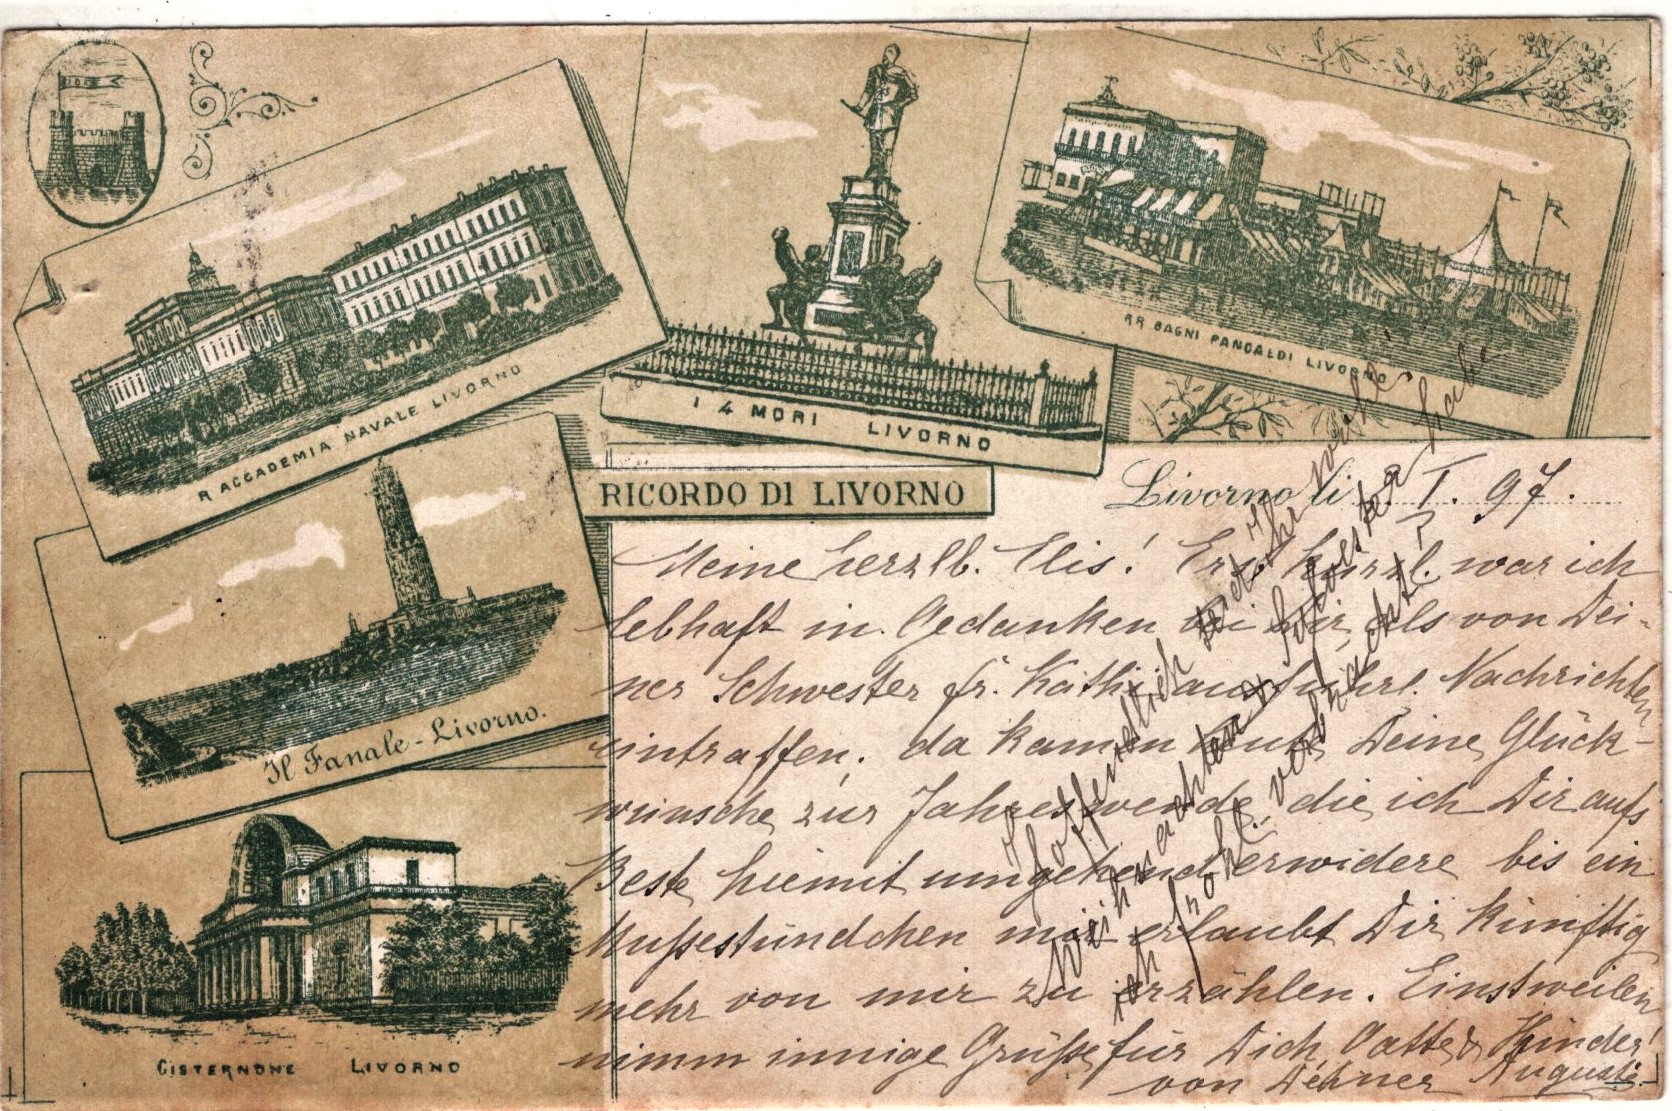 R ACCADEMIA NAVALE LIVORNO
I 4 MORI LIVORNO
RR BAGNI PANCALDI LIVORNO
RICORDO DI LIVORNO
Il Fanale - Livorno.
CISTERNONE LIVORNO
Livorno li I. 97.
Meine herzlb. Elis! Erst kürzl. war ich
lebhaft in Gedanken bei Dir, als von Dei-
ner Schwester fr. Käthi ausführl. Nachrichten
eintraffen, da kamen Deine Glück-
wünsche zur Jahreswende, die ich Dir aufs
Beste hiemit umgehend erwidere bis ein
Mußestündchen mir erlaubt Dir künftig
mehr von mir zu erzählen. Einstweilen
nimm innige Grüße für Dich, Gatte & Kinder
von Deiner Auguste
Hoffentlich seid Ihr wohl,
Weihnachten & Sylvester habt
ihr frohl. verbracht?